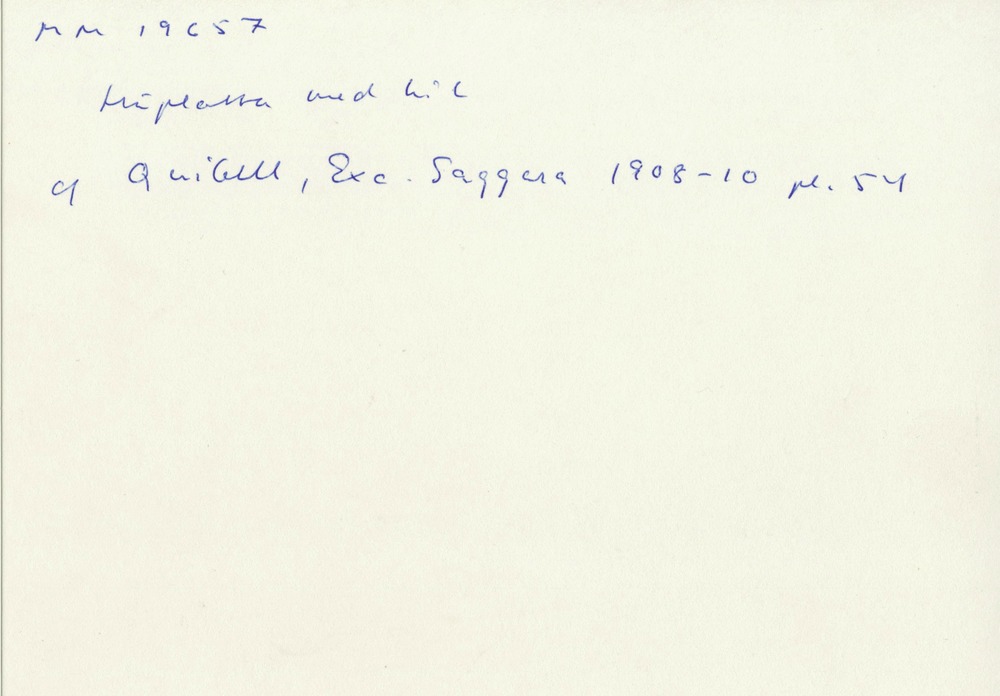 MM 19657
Träplatta med hål
cf Quibell, Exc. Saqqara 1908-10 pl. 54